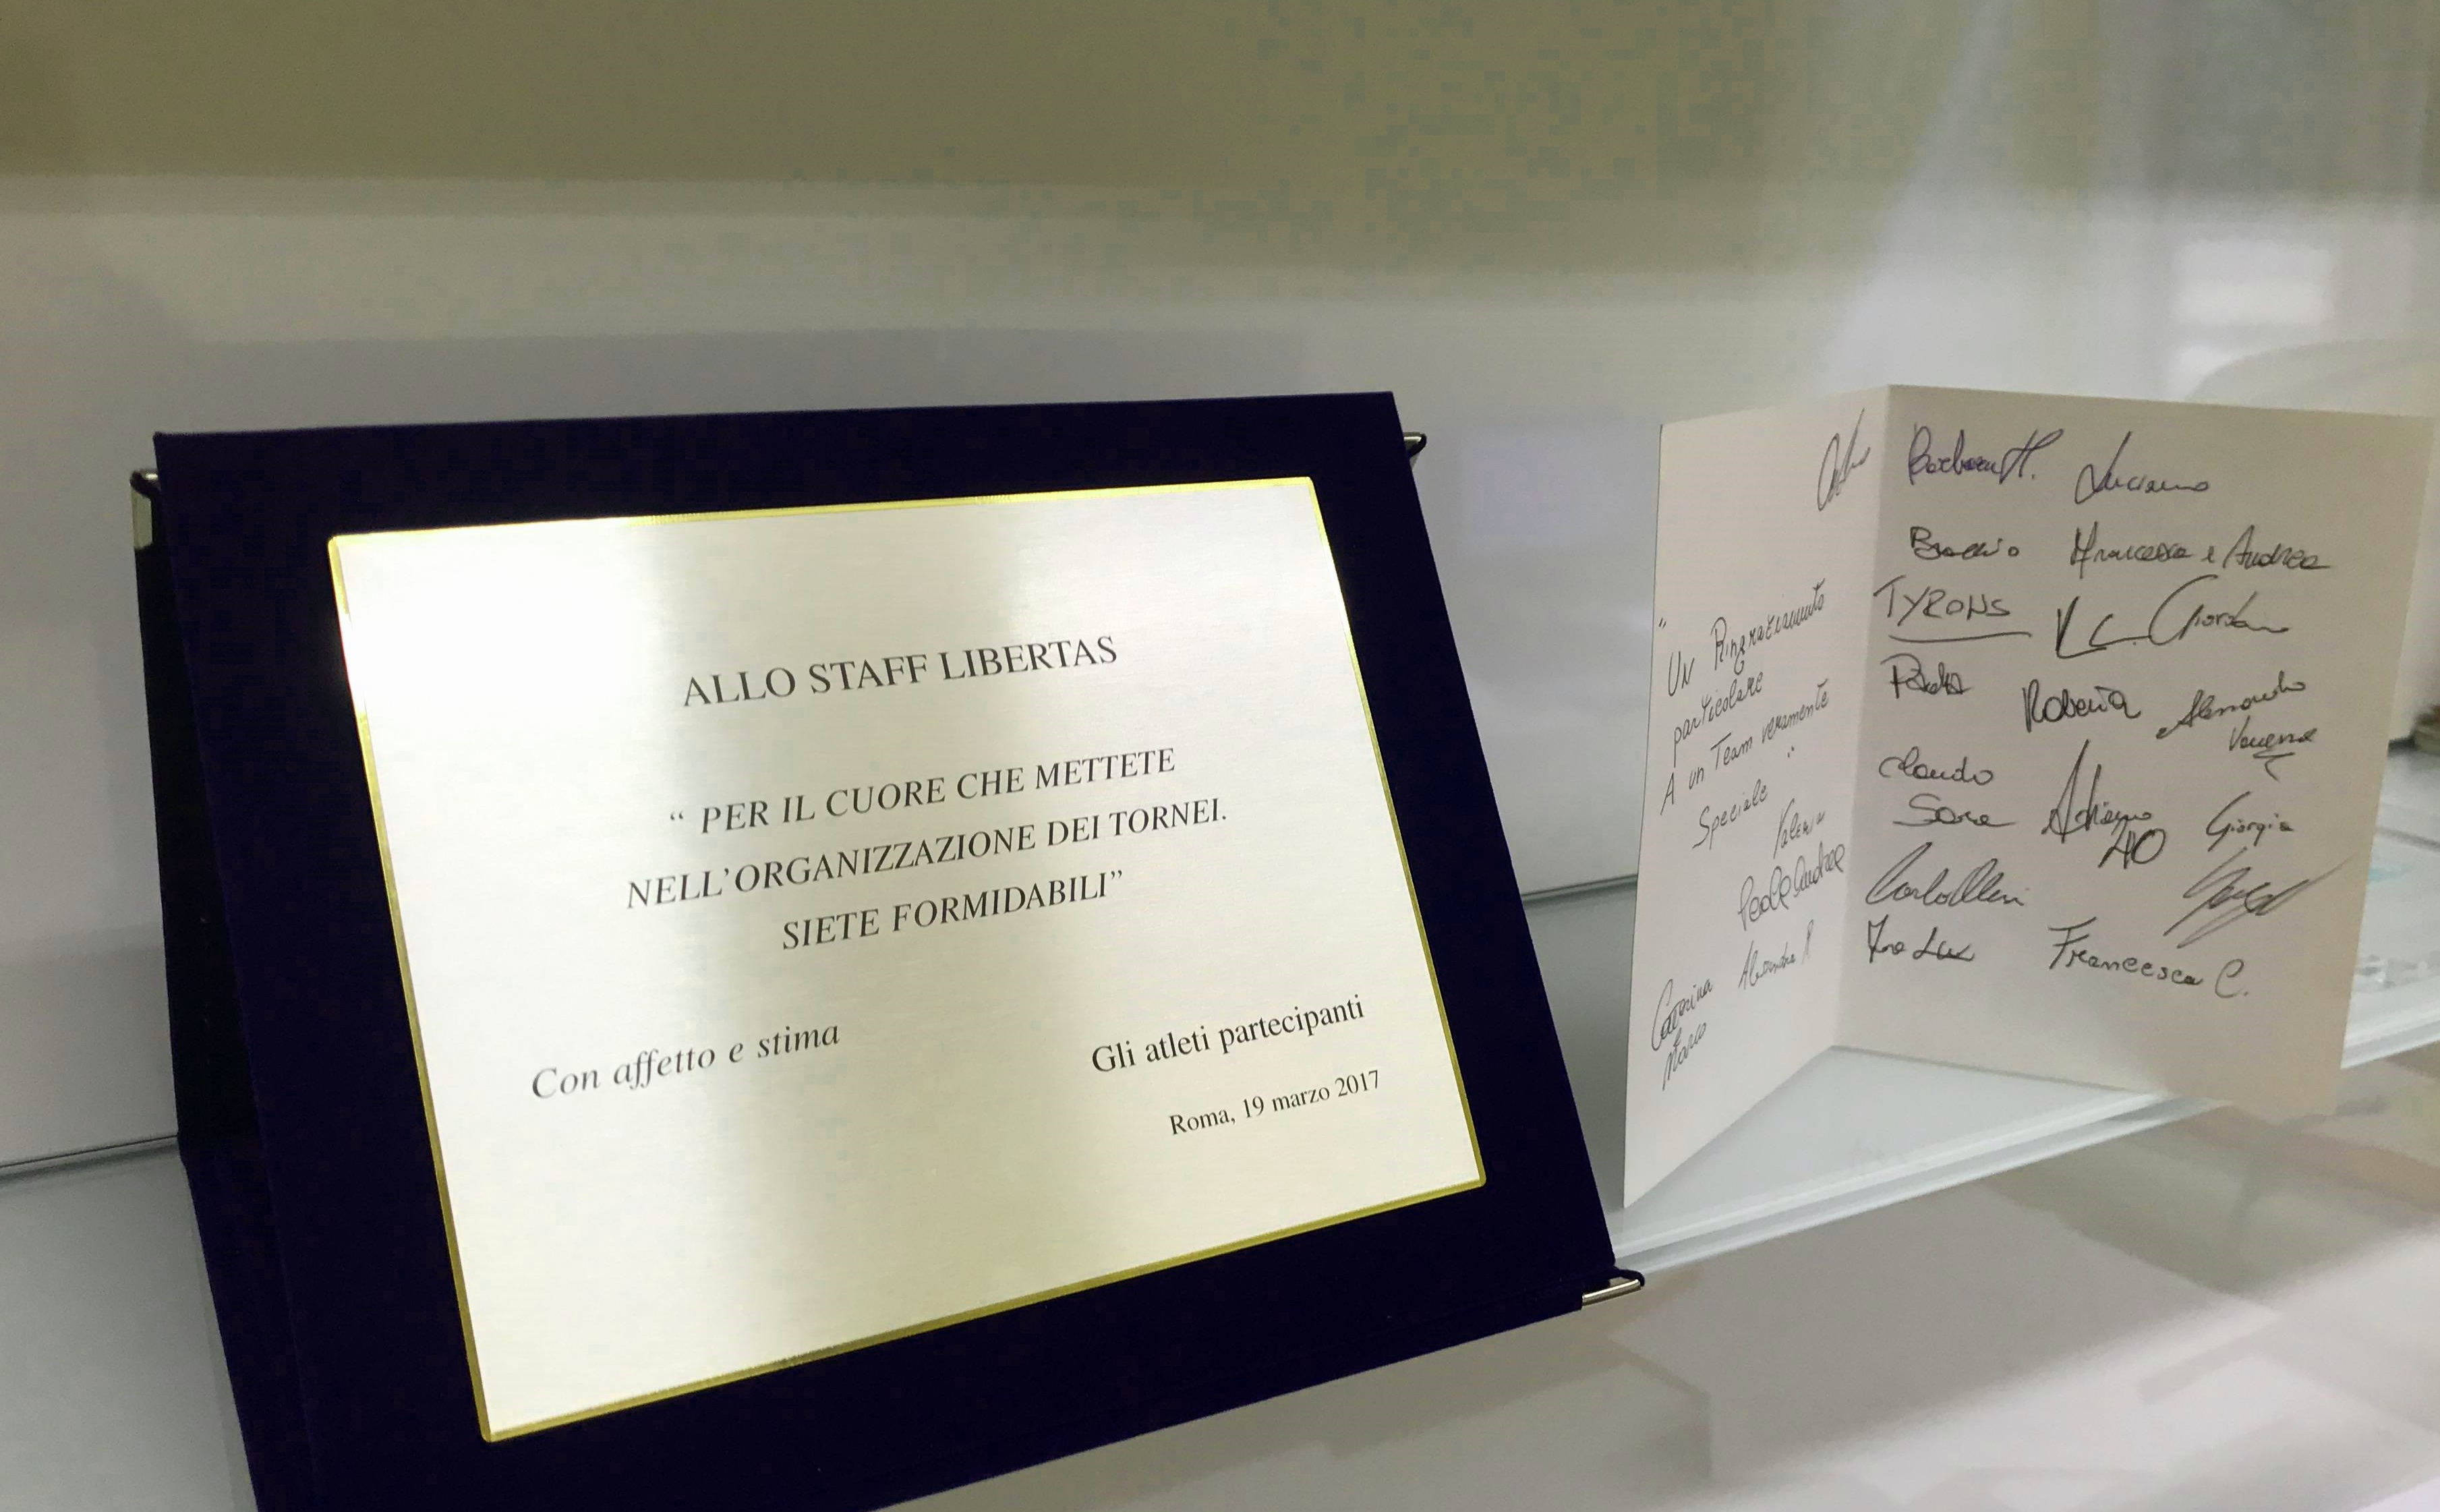 ALLO STAFF LIBERTAS
“ PER IL CUORE CHE METTETE
NELL’ORGANIZZAZIONE DEI TORNEI.
SIETE FORMIDABILI”
Con affetto e stima
Gli atleti partecipanti
Roma, 19 marzo 2017
"Un Ringraziamento
particolare
A un Team veramente
Speciale"
Valeria
Caterina Alessandra R
Marco
Barbara H. Luciano
Francesca e Andrea
TYRONS Giordano
Roberta Alessandro
Claudio
Sara Adriano Giorgia
40
Francesca C.